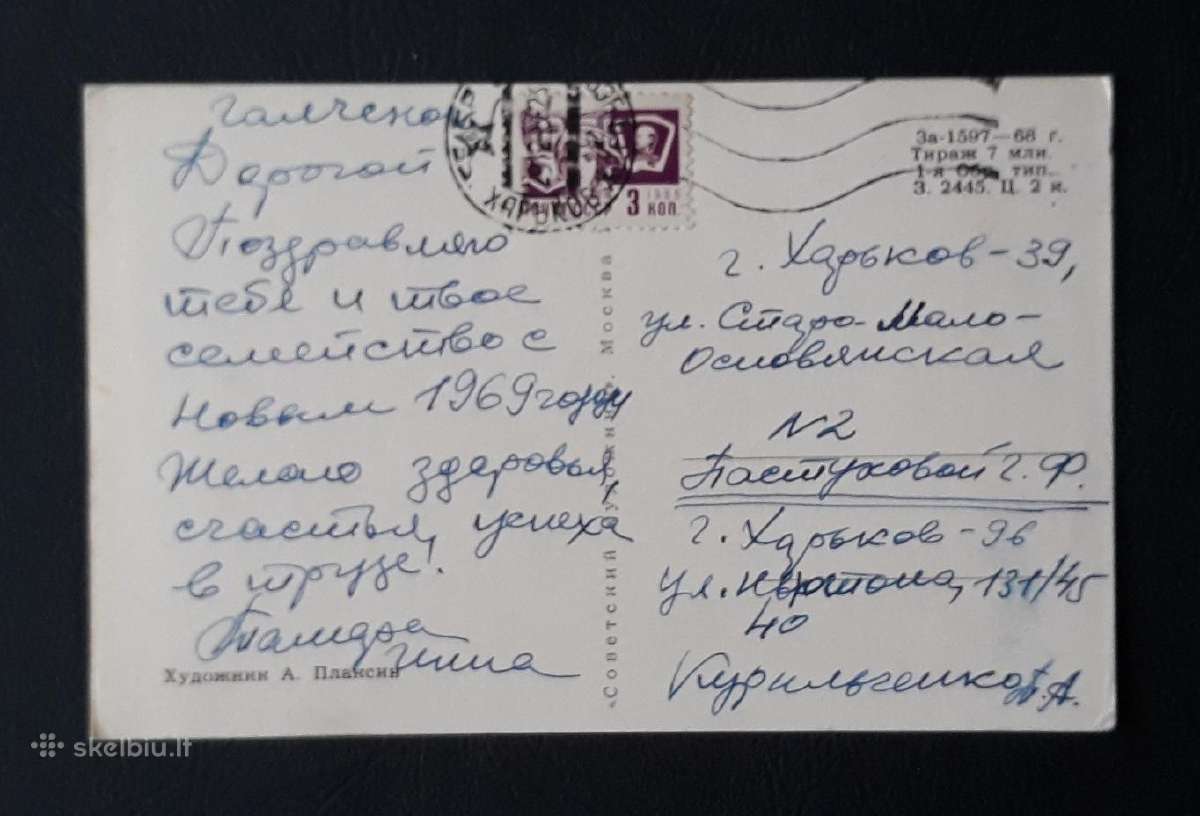 Галченок
Дорогой
Поздравляю
тебя и твое
семейство с
Новым 1969 году
Желаю здаровья,
счастья, успеха
в труде!
Тамара
Художник А. Плаксин
«Советский художник». Москва
ХАРЬКОВ
3 КОП.
За-1597—68 г.
Тираж 7 млн.
1-я Обр. тип.
З. 2445. Ц. 2 к.
г. Харьков-39,
ул. Старо-Мало-
Основянская
N2
Пастуховой Г. Ф.
г. Харьков-96
ул. Ньютона, 131/45
40
Курильченко Т. А.
skelbiu.lt